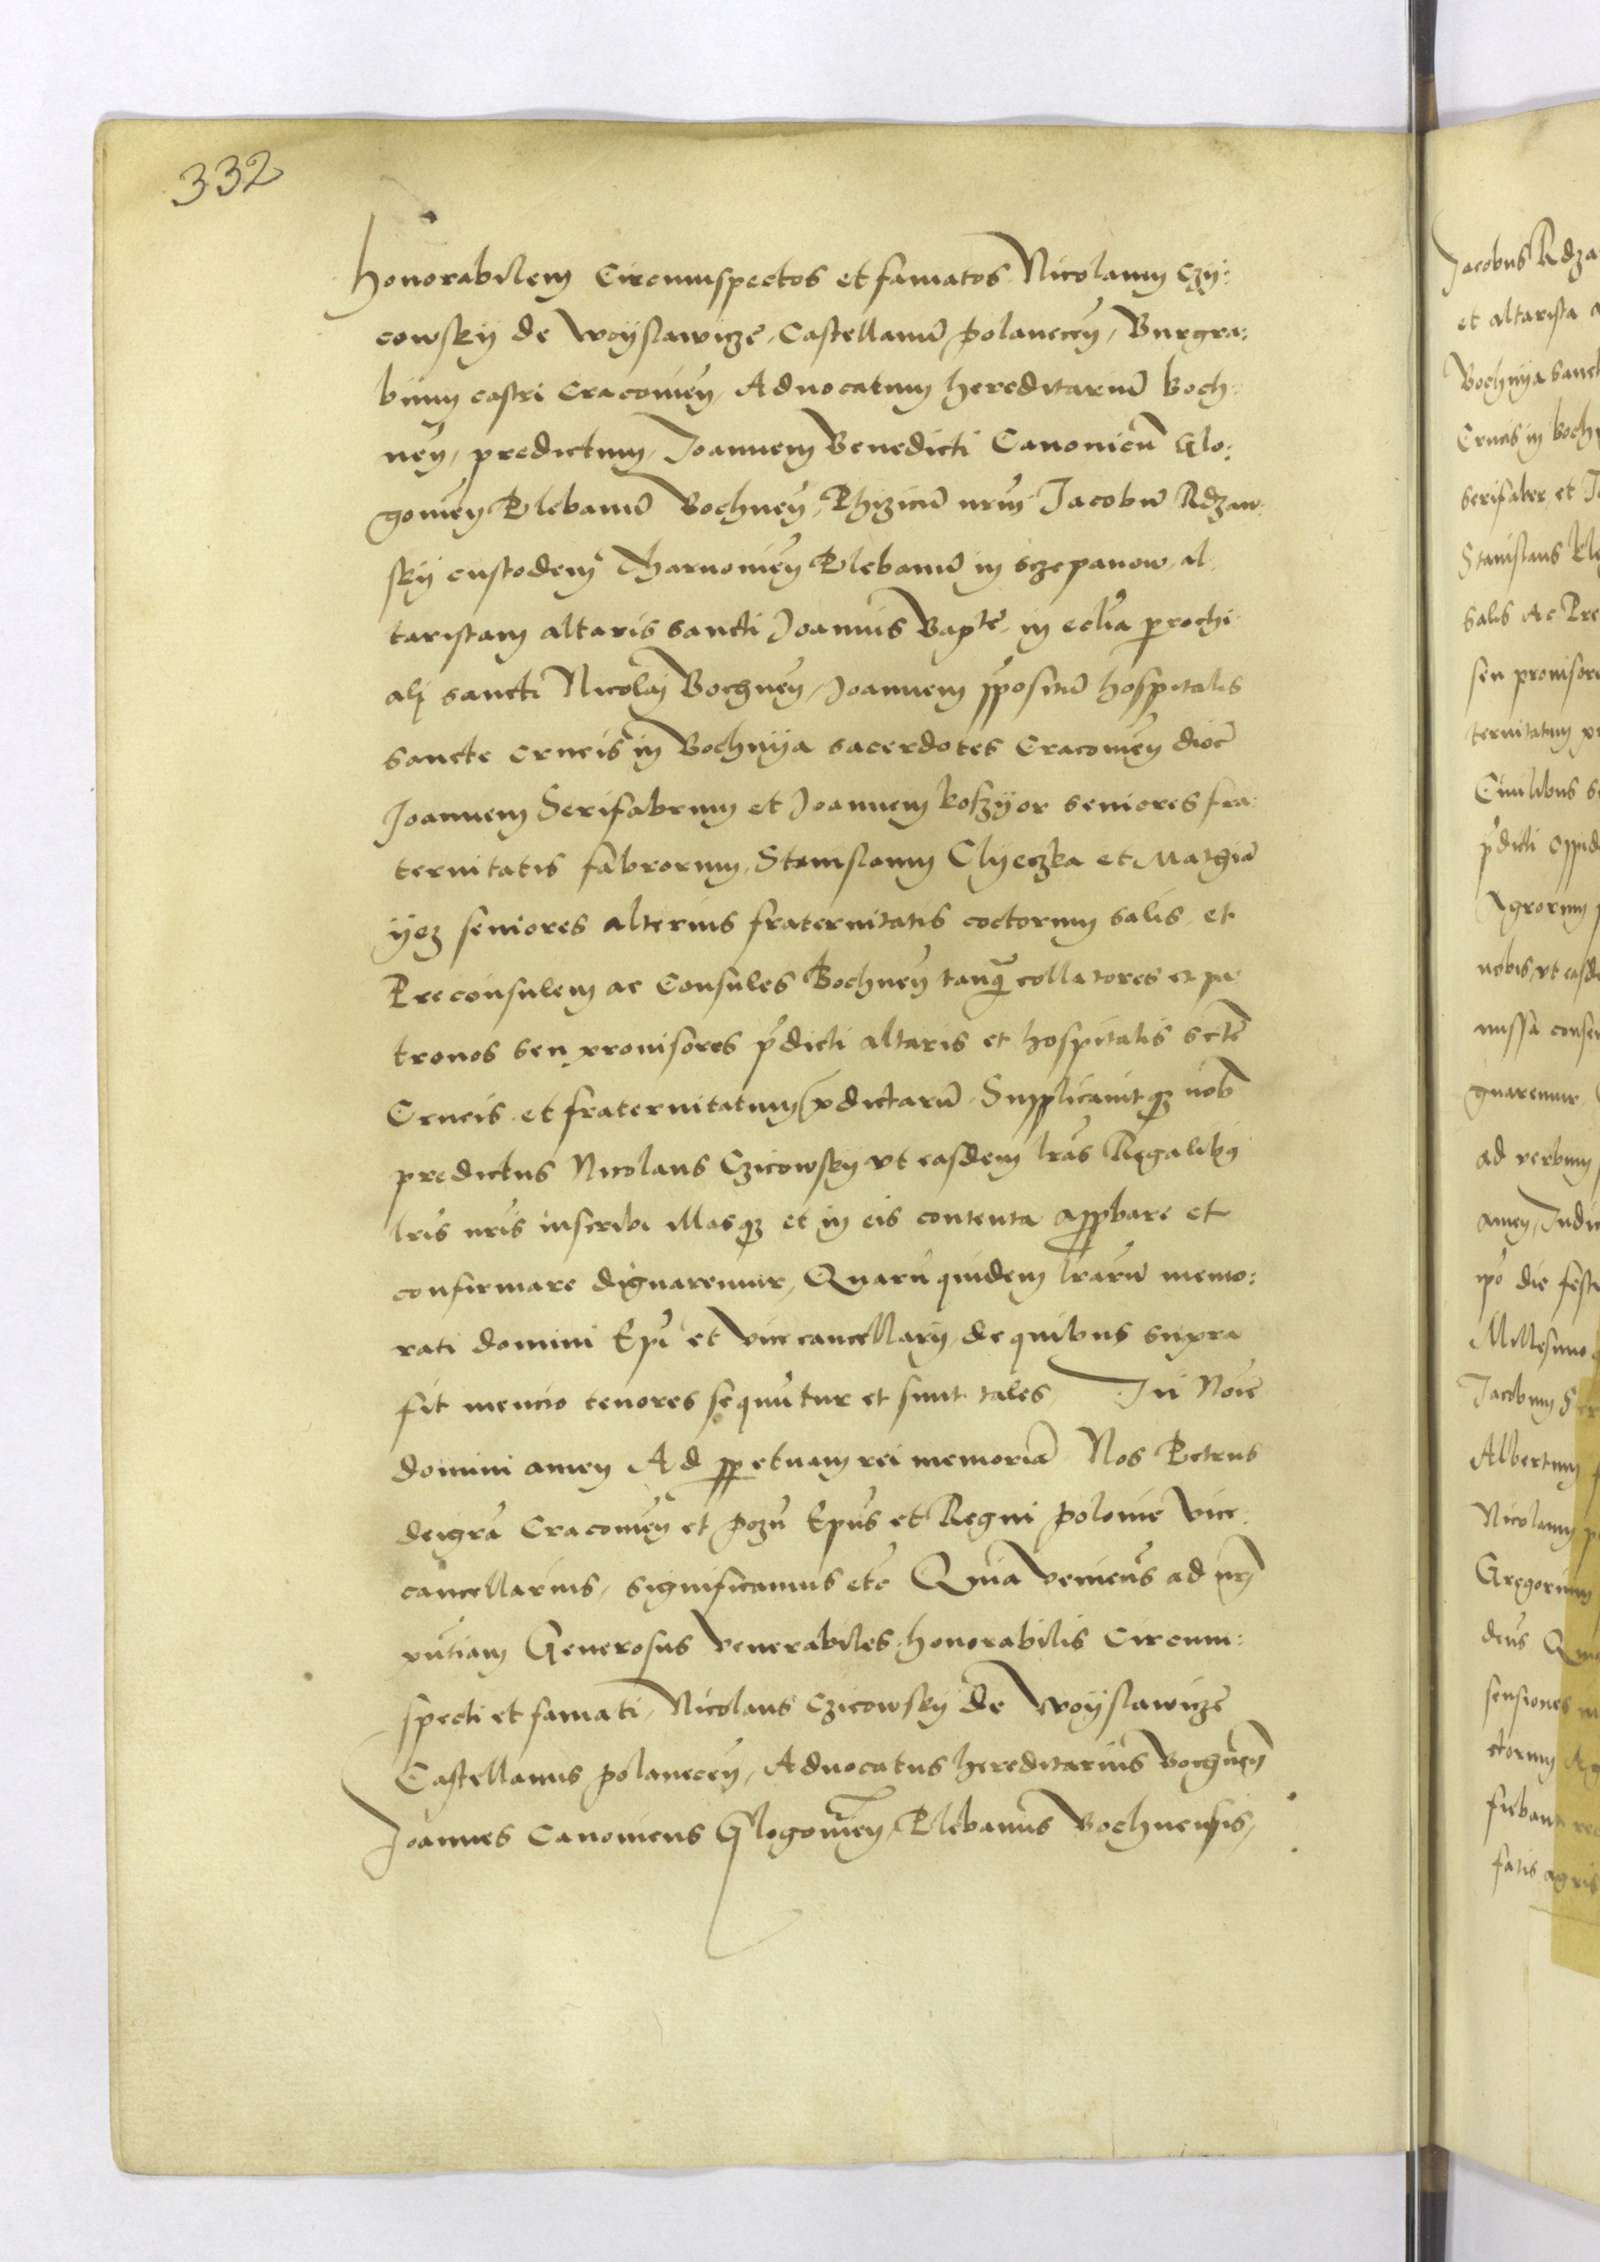 332
honorabilem Circumspectos et famatos Nicolaum Czy:
cowsky de Woyslawicze, Castellanū polanecen̄, Burgra:
bium castri Cracovien̄, Advocatum hereditariū Boch:
nen̄, predictum, Joannem Benedicti Canonicū Glo:
govien̄ Plebanū Bochnen̄, Phizicū nrm̄ Jacobū Rdzaw
sky custodem Tharnovien̄ Plebanū in sczepanow, al
taristam altaris sancti Joannis Bapte in ecclīa parochi
alj sancti Nicolai Bochnen̄, Joannem p̄positū hospitalis
sancte crucis in Bochnya sacerdotes Cracovien̄ dioc̄
Joannem Serifabrum et Joannem koszyor seniores fra
ternitatis fabrorum, Stanislaum Clyeczka et Mathiā
yez seniores alterius fraternitatis coctorum salis, et
Preconsulem ac Consules Bochnen̄ tanq̄ collatores et pa
tronos seu provisores p̄dicti altaris et hospitalis scte
Crucis et fraternitatum p̄dictarū. Supplicavitqȝ nob̄
predictus Nicolaus Czicowsky vt easdem lr̄as Regalibꝯ
lr̄is nr̄is inscribi illasqȝ et in eis contenta approbare et
confirmare dignaremur, Quarū quidem lr̄arū memo:
rati domini Ep̄i et vicecancellary, de quibus supra
fit mencio tenores sequūtur et sunt tales, In Noīe
domini amen Ad perpetuam rei memoriā Nos Petrus
dei gr̄a Cracovien̄ et pozn̄ Ep̄us et Regni polonie vice
cancellarius, significamus etc̄ Quia veniens̄ ad nr̄am
pn̄tiam Generosus venerabiles, honorabilis Circum:
specti et famati, Nicolaus Czicowsky de Woyslawicze
Castellanus polanecen̄, Advocatus hereditarius Bochnen̄
Joannes Canonicus Glogovien̄, Plebanus Bochnensis,
Jacobus Rdza
et altarista a
Bochnya sanct
Crucis in boch
serifaber, et J
Stanislaus Kly
salis Ac Pre
seu provisor
ternitatum
Civilibus
p̄dicti oppid
Agrorum
nobis, vt easd
missa conse
gnaremur,
ad verbum
amen, Indic
ip̄o die fest
Millesimo
Jacobum
Albertum
Nicolaum
Gregorium
sensiones
fieban
satis agris